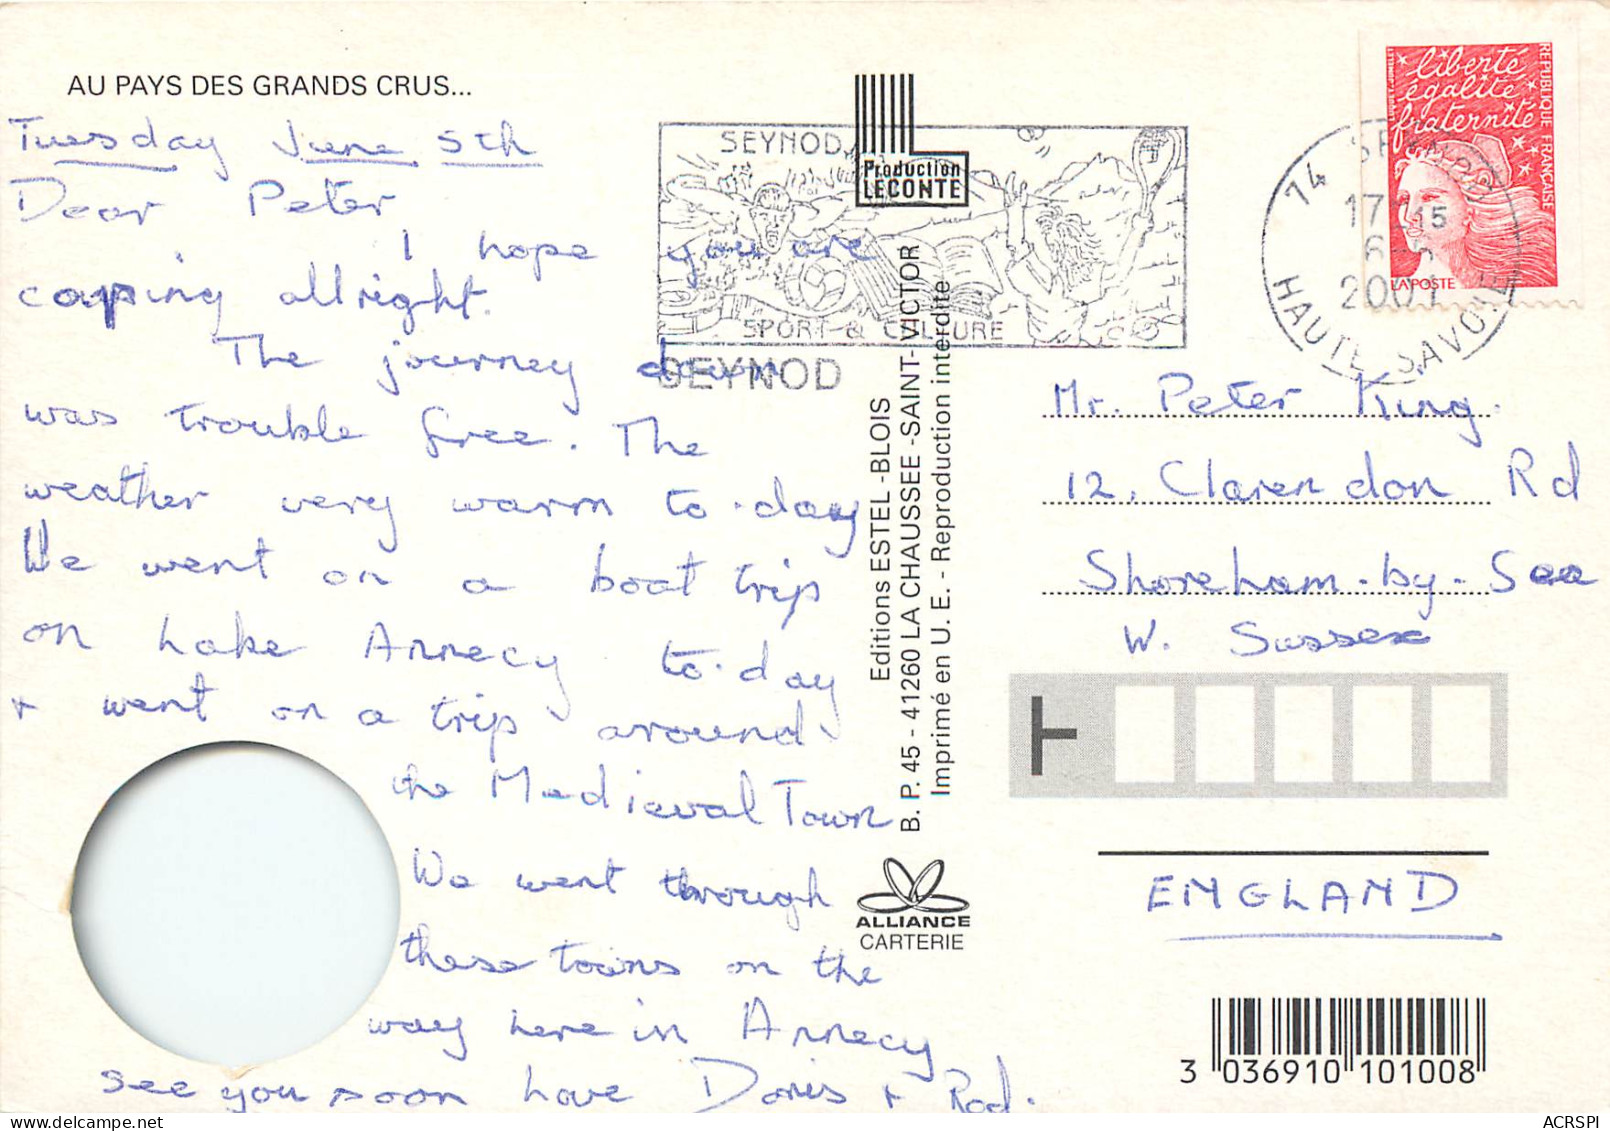 AU PAYS DES GRANDS CRUS...
Tuesday June 5th
Dear Peter
I hope you are
coping allright.
The journey down
was trouble free. The
weather very warm to-day
We went on a boat trip
on Lake Annecy to-day
+ went on a trip around
the Medieval Town
We went through
these towns on the
way here in Annecy
see you soon love Doris + Rod.
SEYNOD
SPORT & CULTURE
SEYNOD
Production
LECONTE
Editions ESTEL-BLOIS
B. P. 45 - 41260 LA CHAUSSEE-SAINT-VICTOR
Imprimé en U. E. - Reproduction interdite
ALLIANCE
CARTERIE
liberté
égalité
fraternité
REPUBLIQUE FRANÇAISE
LA POSTE
74 SEYNOD
17 15
6-6
2001
HAUTE SAVOIE
Mr. Peter King.
12, Clarendon Rd
Shoreham-by-Sea
W. Sussex
ENGLAND
3 036910 101008
ACRSPI